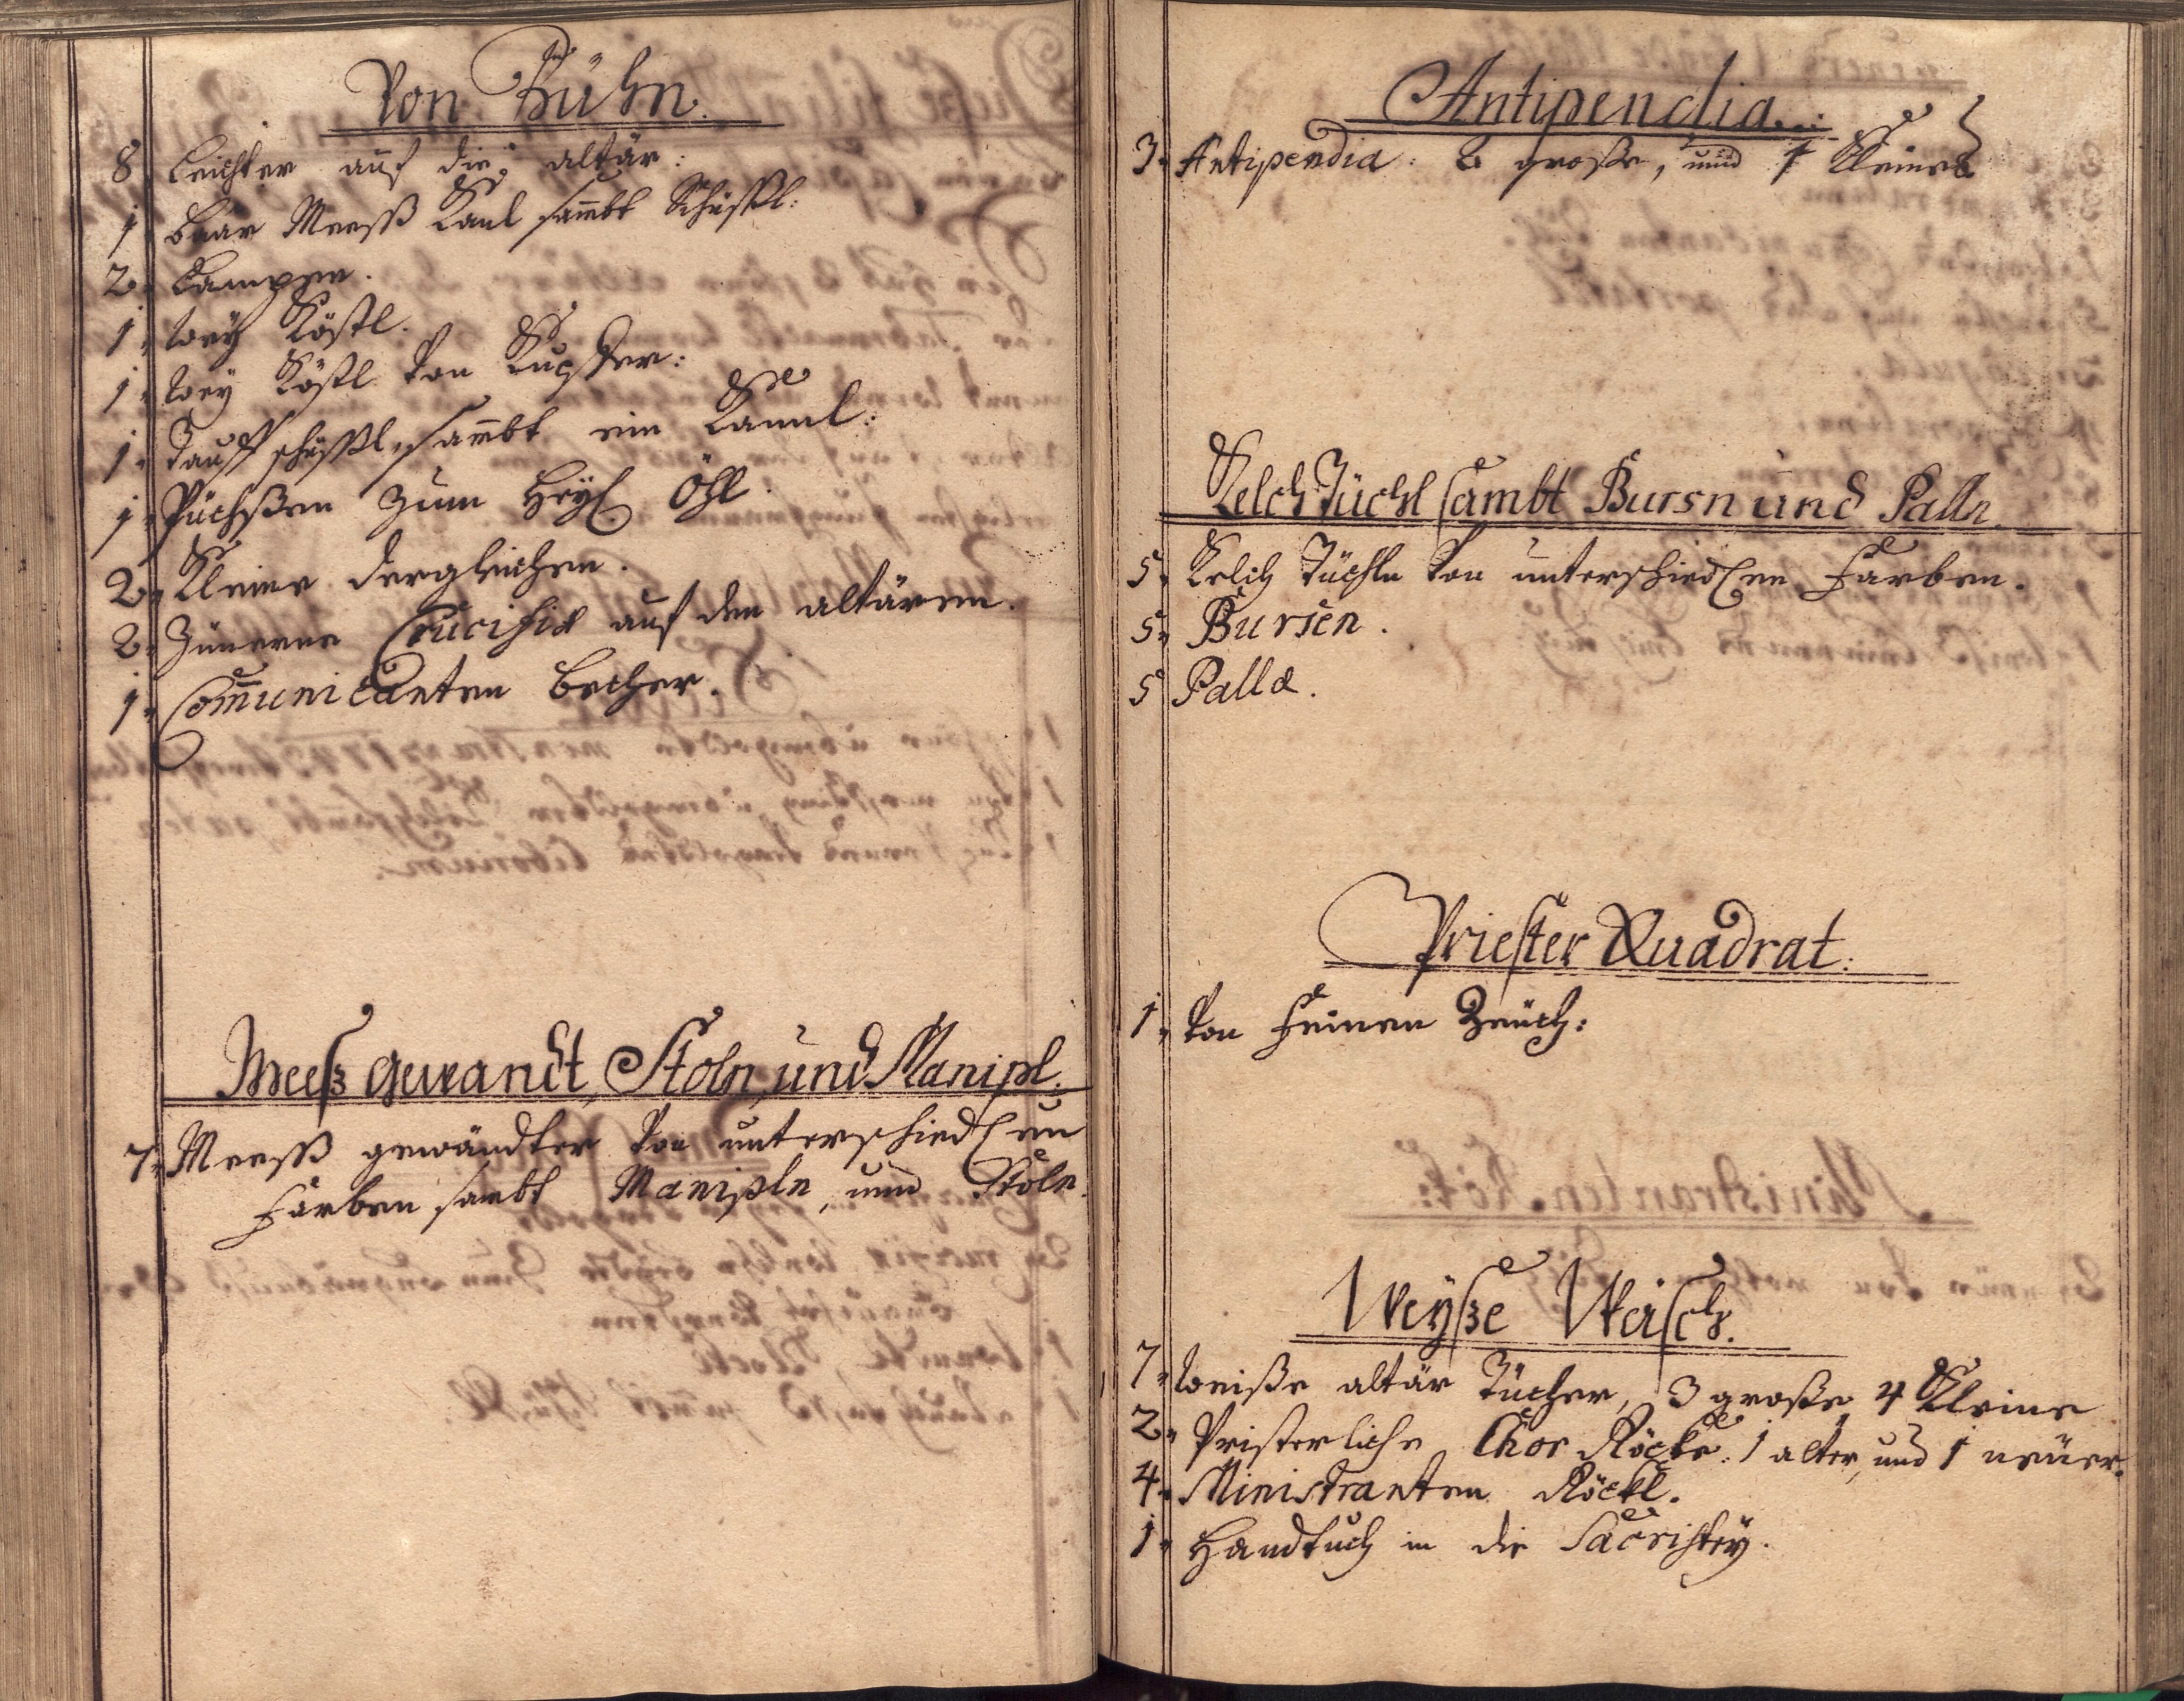 Von Zühn.
8 Leichter auf die altär:
1 Baar Meeß Kanl sambt Schüssl:
2. Lampen.
1 Wey Kößl.
1. Wey Kößl Von Kupffer:
1. Tauff schüssl, sambt ein Kannl:
1. Püchßen Zum Heyl. Öhl.
2. Kleine dergleichen.
2. Zünerne Crucifix auf den altären.
1. Communicanten becher.
Meeß gewandt, Stoln, und Manipl.
7. Meeß gewändter Von unterschiedlen
Farben sambt Manipln, und Stoln.
Antipendia.
3. Antipendia: 2 große, und 1 Kleines
Kelch Tüchl sambt Bursn und Palln.
5. Kelch Tüchln Von unterschiedlen Farben.
5. Bursen.
5 Pallæ.
Priester Quadrat:
1. Von Feinen Zeüch:
Weyße Wäsch.
7. Weiße altär Tücher, 3 große 4 Kleine
2. Pristerliche Chor Röcke: 1 alter, und 1 neüer.
4. Ministranten Röckl.
1. Handtuch in die Sacristey.